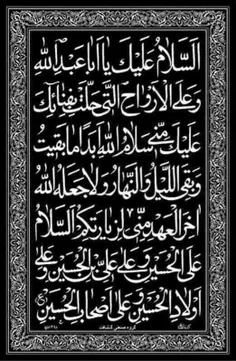 اَلسَّلامُ عَلَیْكَ یا اَبا عَبْدِ اللهِ
وَ عَلَی الْاَرْواحِ الَّتي حَلَّتْ بِفِنائِكَ
عَلَیْكَ مِنّي سَلامُ اللهِ اَبَداً ما بَقیتُ
وَ بَقِيَ اللَّیْلُ وَ النَّهارُ وَ لا جَعَلَهُ اللهُ
آخِرَ الْعَهْدِ مِنّي لِزِیارَتِکُمْ اَلسَّلامُ
عَلَی الْحُسَیْنِ وَ عَلی عَلِيِّ بْنِ الْحُسَیْنِ وَ عَلی
اَوْلادِ الْحُسَیْنِ وَ عَلی اَصْحابِ الْحُسَیْنِ
گروه صنعتی کشافت